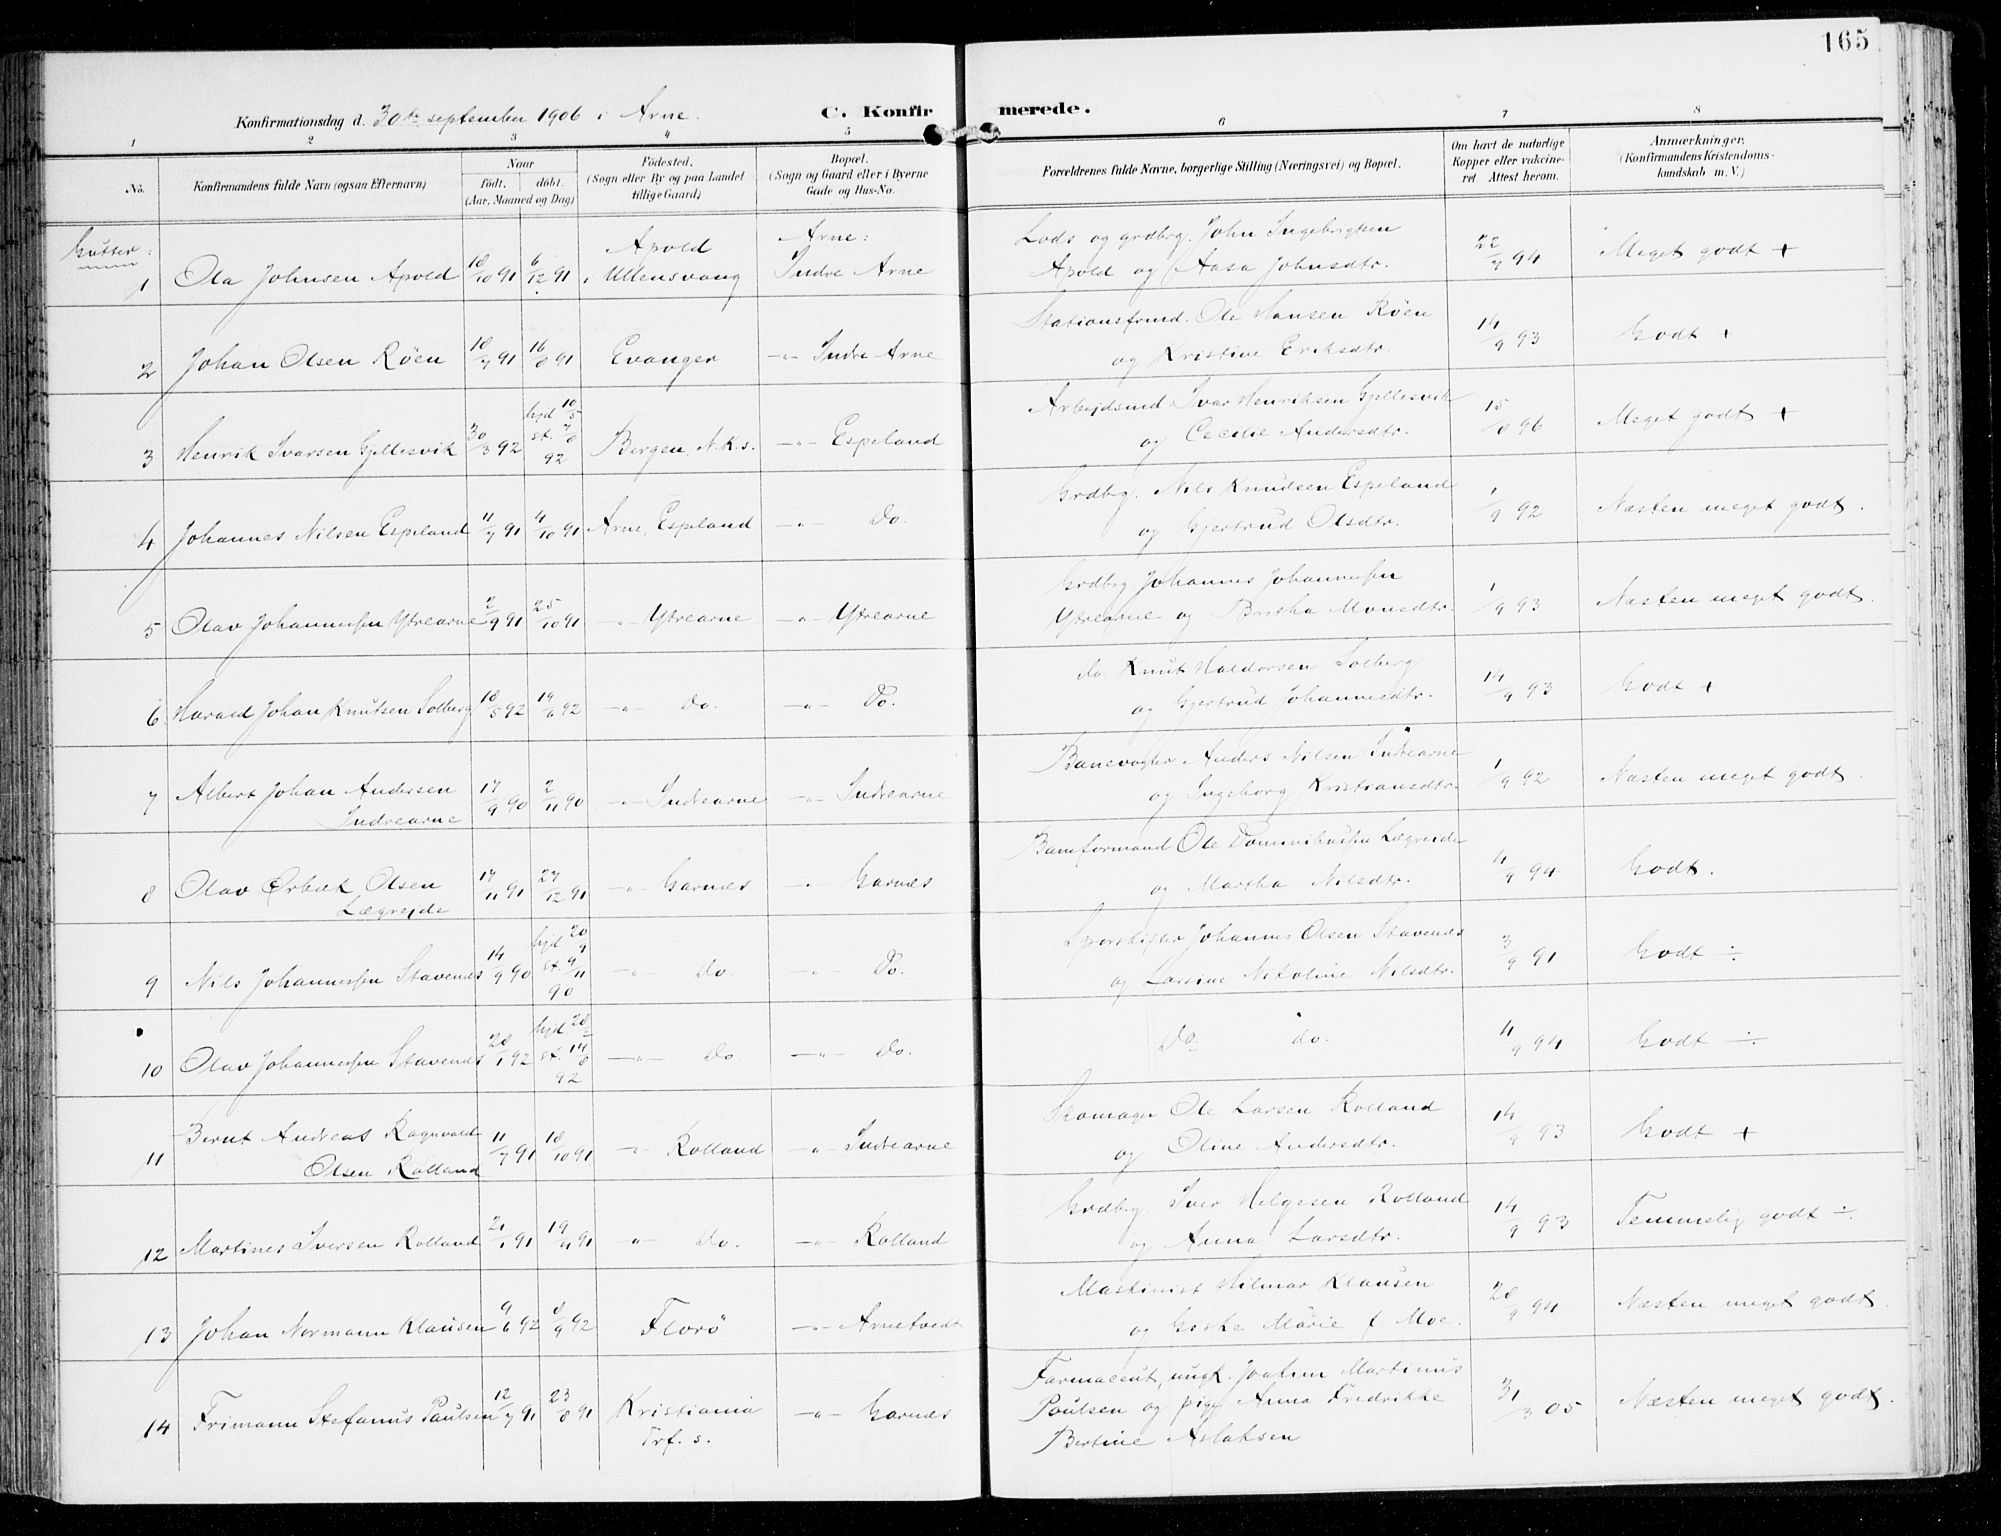 165
Konfirmationsdag d. 30te september 1906 i Arne.
C. Konfirmerede.
1 2 3 4 5 6 7 8
No.
Konfirmandens fulde Navn (ogsaa Efternavn)
Naar
født. døbt.
(Aar, Maaned og Dag)
Fødested.
(Sogn eller By og paa Landet
tillige Gaard)
Bopæl.
(Sogn og Gaard eller i Byerne
Gade og Hus-No.
Forældrenes fulde Navne, borgerlige Stilling (Næringsvei) og Bopæl.
Om havt de naturlige
Kopper eller vakcine-
ret. Attest herom.
Anmærkninger.
(Konfirmandens Kristendoms-
kundskab m. V.)
Gutter:
1 Ola Johnsen Apold 18/10 91 6/12 91 Apold i Ullensvang Arne: Indre Arne Lods og grdbrg. John Ingebrigtsen
Apold og Aasa Johnsdtr. 22/9 94 Meget godt +
2 Johan Olsen Røen 18/7 91 16/8 91 Evanger -"- Indre Arne Stationsfrmd. Ole Hansen Røen
og Kristine Eriksdtr. 14/9 93 Godt +
3 Henrik Ivarsen Gjellesvik 30/3 92 hjd 10/5 st. 7/8 92 Bergen, N.K.s. -"- Espeland Arbejdsmd Ivar Henriksen Gjellesvik
og Cecilie Andersdtr. 15/8 96 Meget godt +
4 Johannes Nilsen Espeland 11/7 91 4/10 91 Arne, Espeland -"- Do. Grdbrg. Nils Knudsen Espeland
og Gjertrud Olsdtr. 1/9 92 Næsten meget godt.
5 Olav Johannessen Ytrearne 2/9 91 25/10 91 -"- Ytrearne -"- Ytrearne Grdbrg Johannes Johannessen
Ytrearne og Britha Monsdtr. 1/9 93 Næsten meget godt.
6 Harald Johan Knutsen Solberg 18/5 92 19/6 92 -"- Do. -"- Do. Do. Knut Haldorsen Solberg
og Gjertrud Johannesdtr. 14/9 93 Godt +
7 Albert Johan Andersen
Indrearne 17/9 90 2/11 90 -"- Indrearne -"- Indrearne Banevogter Anders Nilsen Indrearne
og Ingeborg Kristiansdtr. 1/9 92 Næsten meget godt.
8 Olav Ørbæk Olsen
Lægreide 17/11 91 27/12 91 -"- Garnæs -"- Garnæs Baneformand Ole Dominikusen Lægreide
og Martha Nilsdtr. 4/9 94 Godt.
9 Nils Johannessen Stavenes 14/9 90 hjd 20/9 st. 9/11 90 -"- Do. -"- Do. Sporskifter Johannes Olsen Stavenes
og Larsine Nikoline Nilsdtr. 3/9 91 Godt ÷
10 Olav Johannessen Stavenes 28/1 92 hjd 28/2 st. 14/8 92 -"- Do. -"- Do. Do. do. 4/9 94 Godt ÷
11 Bernt Andreas Ragnvald
Olsen Rolland 11/7 91 18/10 91 -"- Rolland -"- Indrearne Skomager Ole Larsen Rolland
og Oline Andersdtr. 14/9 93 Godt +
12 Martines Iversen Rolland 21/1 91 19/4 91 -"- Do. -"- Rolland Grdbrg. Iver Helgesen Rolland
og Anna Larsdtr. 14/9 93 Temmelig godt ÷.
13 Johan Normann Klausen 9/6 92 8/9 92 Florø -"- Arnetvedt Maskinist Hilmar Klausen
og Marie f. Moe. 28/9 94 Næsten meget godt.
14 Frimann Stefanus Paulsen 12/7 91 23/8 91 Kristiania
Trf. s. -"- Garnæs Farmaceut, ungk. Joakim Martinus
Poulsen og pige Anna Fredrikke
Bertine Aslaksen 31/3 05 Næsten meget godt.